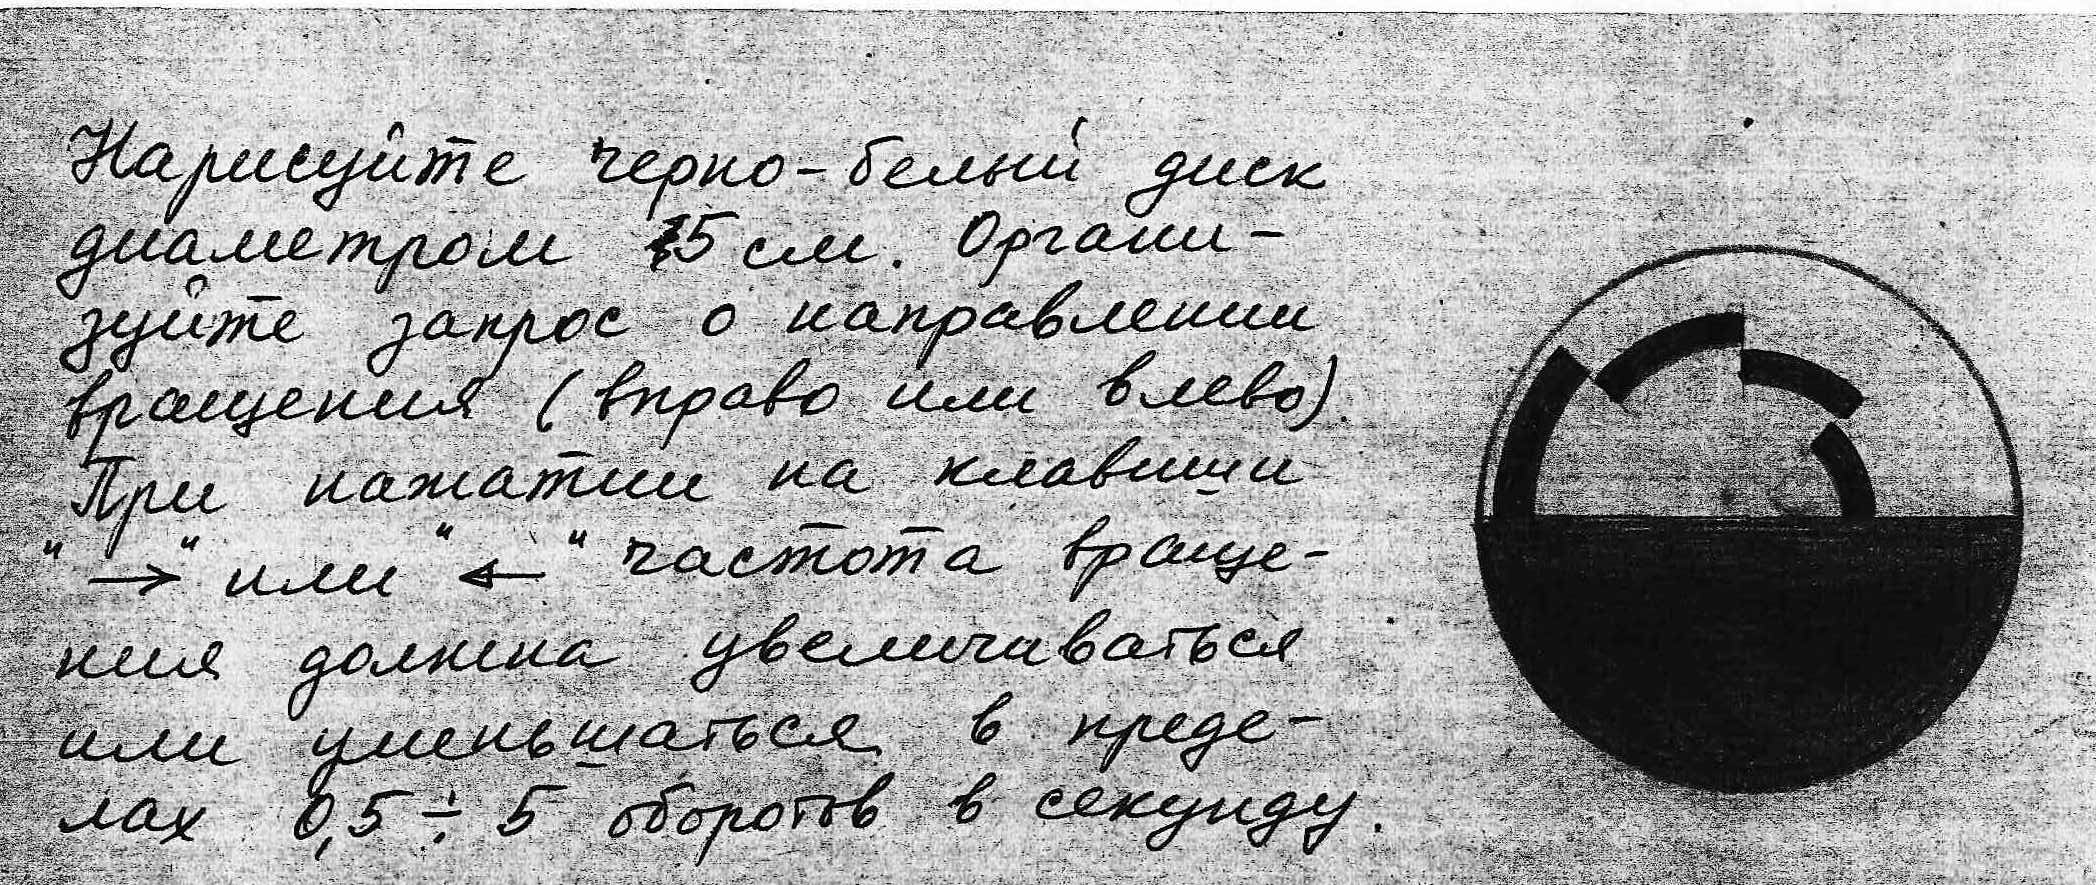 Нарисуйте черно-белый диск
диаметром 15 см. Органи-
зуйте запрос о направлении
вращения (вправо или влево).
При нажатии на клавиши
"→" или "←" частота враще-
ния должна увеличиваться
или уменьшаться в преде-
лах 0,5 ÷ 5 оборотов в секунду.